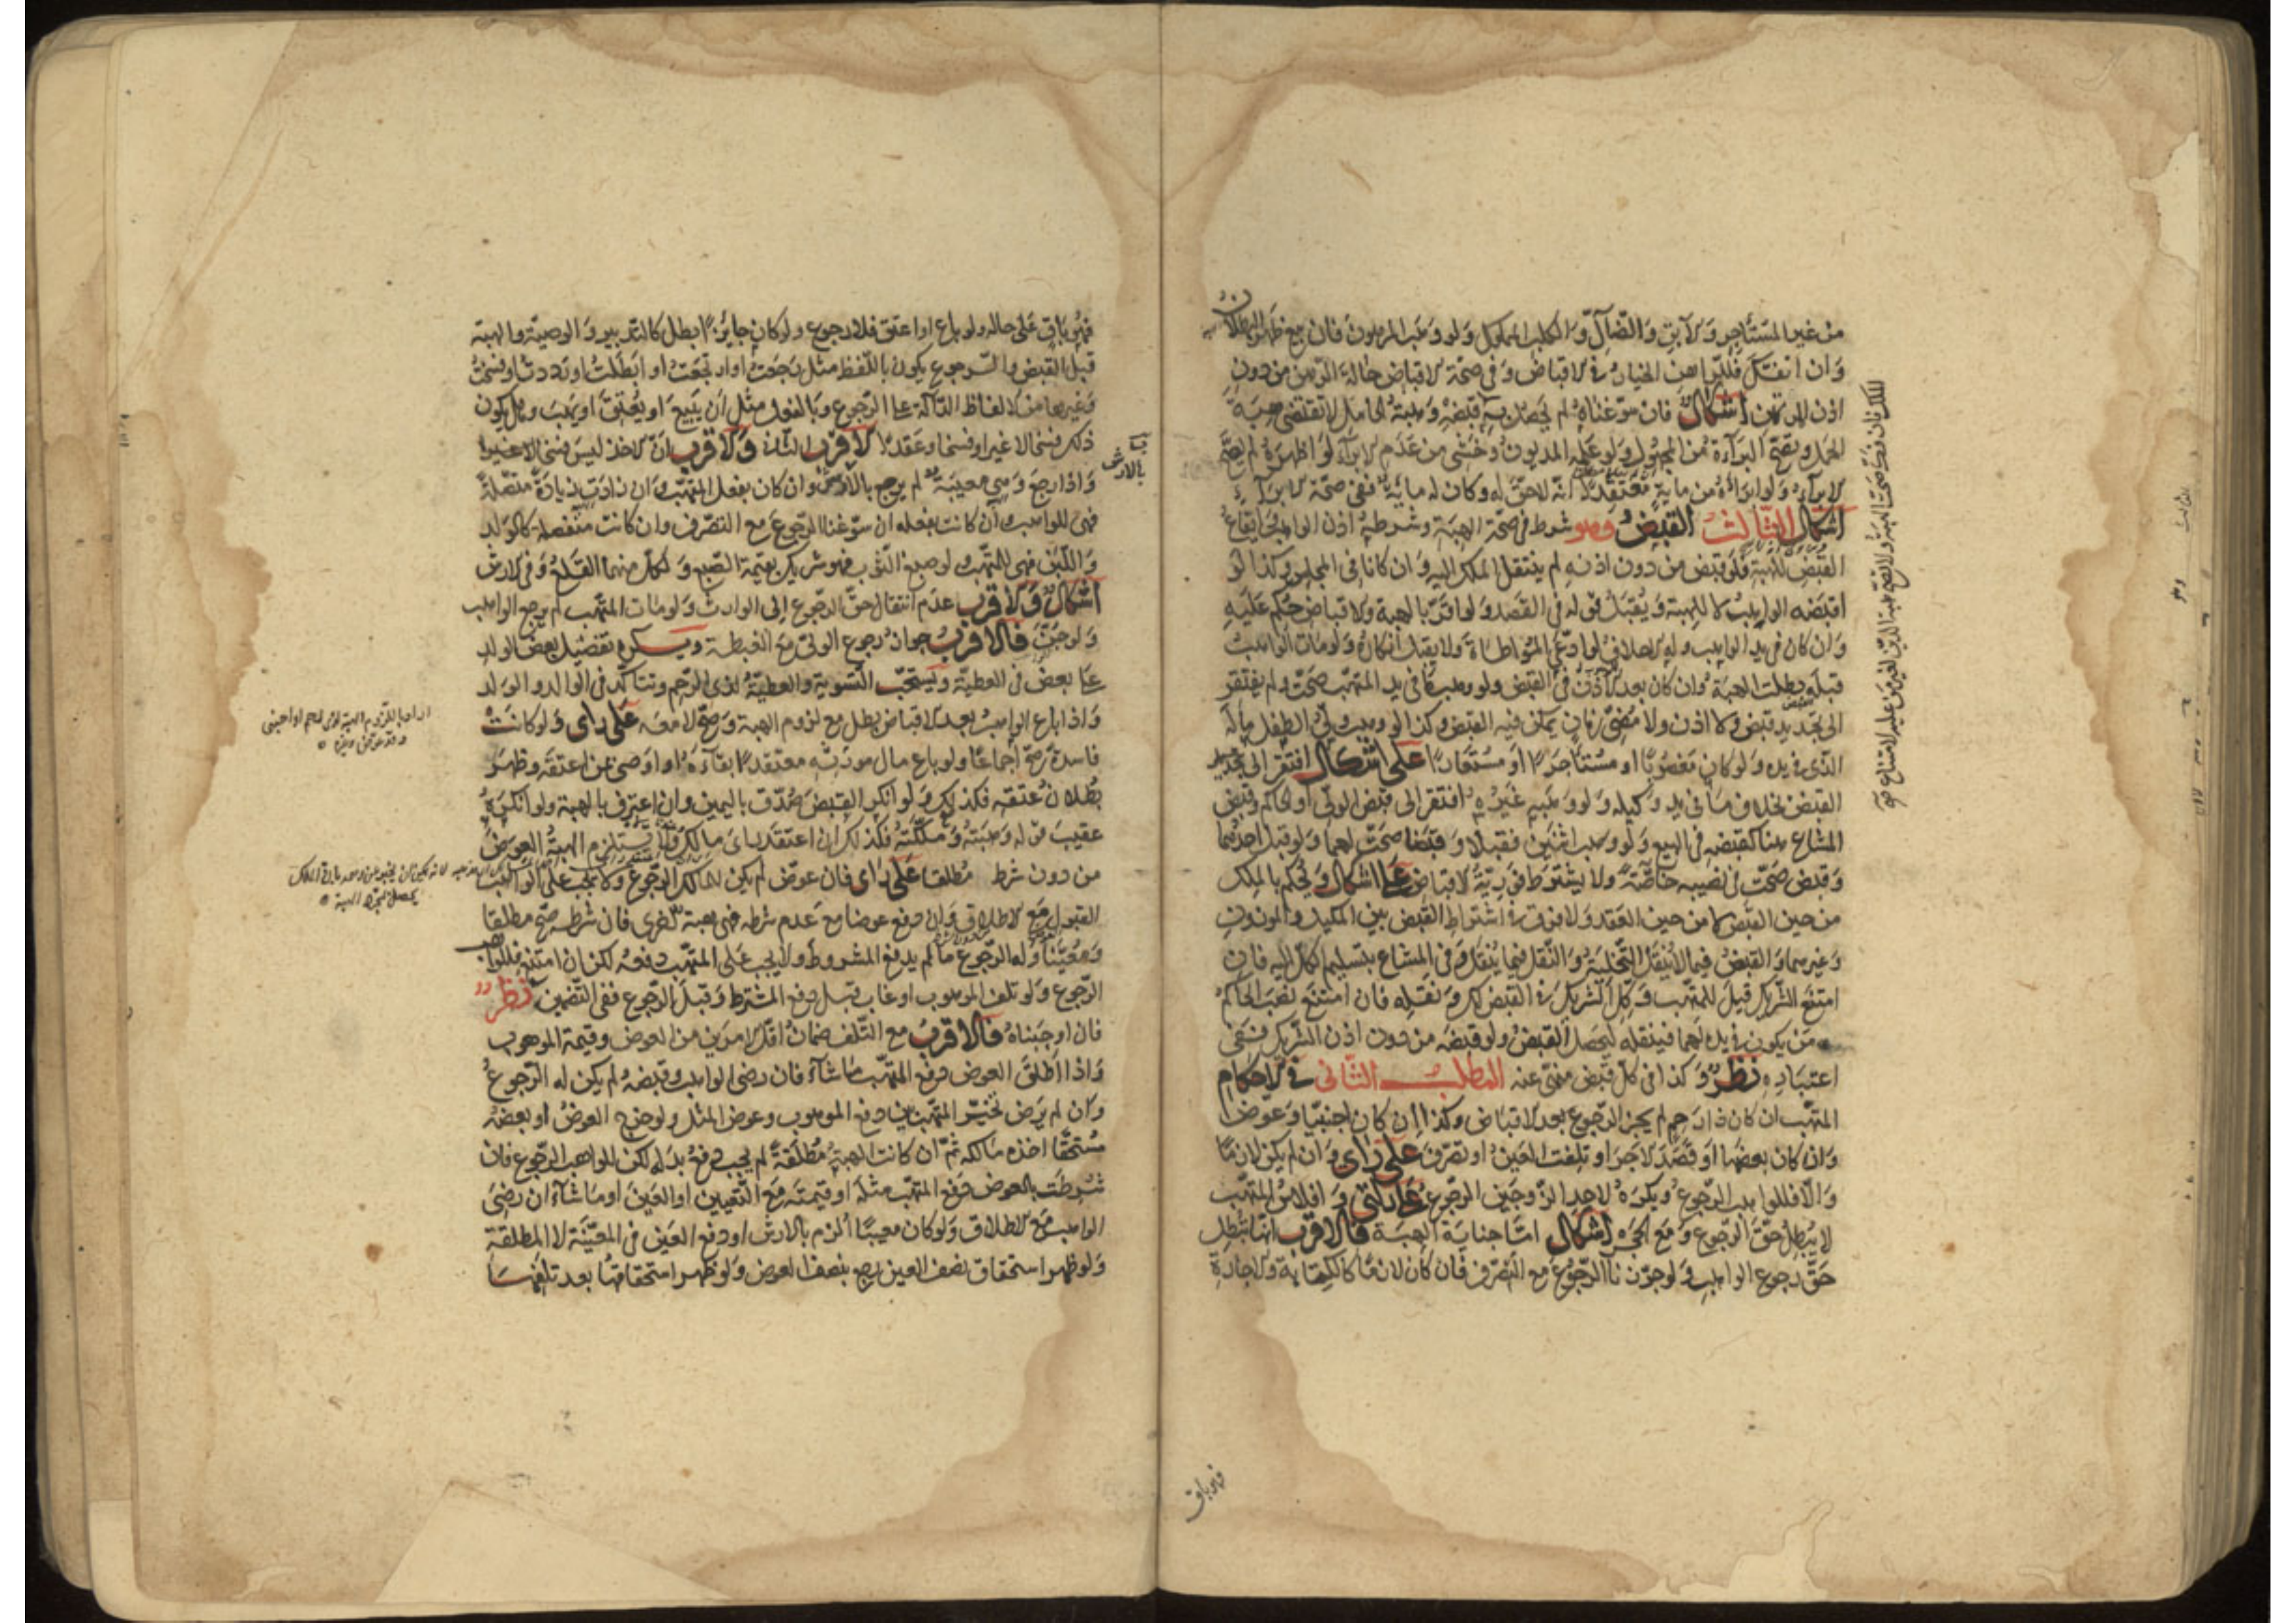 من غير المستأجر والآبق والضال والكلب المملوك ولو وهب المرهون فان بيع ظهر البطلان
وان انفك فللراهن الخيار في الاقباض وفي صحة الاقباض حالة الرهن من دون
اذن المرتهن اشكال فان سوغناه لم يحصل به قبضه وهبة الحامل لا تقتضي هبة
الحمل وتصح البراءة من المجهول ولو علمه المديون وخشي من عدم الابراء لو اظهره لم يصح
الابراء ولو ابراءه من ماية معتقدا انه لا حق له وكان له ماية ففي صحة الابراء
اشكال الثالث القبض وهو شرط في صحة الهبة وشرطه اذن الواهب
القبض للهبة فلو قبض من دون اذنه لم ينتقل الملك اليه وان كانا في المجلس وكذا لو
اقبضه الواهب لا للهبة ويقبل قوله في القصد ولو اقر بالهبة والاقباض حكم عليه
وان كان في يد الواهب وله الاحلاف لو ادعى المواطاة ولا يقبل انكاره ولو مات الواهب
قبله بطلت الهبة وان كان بعد الاذن في القبض ولو وهب ما في يد المتهب صحت ولم يفتقر
الى تجديد قبض ولا اذن ولا مضي زمان يمكن فيه القبض وكذا لو وهب ولي الطفل ماله
الذي في يده ولو كان مغصوبا او مستأجرا او مستعارا على اشكال افتقر الى تجديد
القبض بخلاف ما في يد وكيله ولو وهبه غيره افتقر الى قبض الولي او الحاكم وقبض
المشاع هنا كقبضه في البيع ولو وهب اثنين فقبلا وقبضا صحت لهما ولو قبل احدهما
وقبض صحت في نصيبه خاصة ولا يشترط فورية الاقباض على اشكال ويحكم بالملك
من حين القبض لا من حين العقد ولا فرق في اشتراط القبض بين المكيل والموزون
وغيرهما والقبض فيما لا ينقل التخلية والنقل فيما ينقل وفي المشاع بتسليم الكل اليه فان
امتنع الشريك قيل للمتهب وكل الشريك في القبض لك ونقله فان امتنع نصب الحاكم
من يكون في يده لهما فينقله ليحصل القبض ولو قبضه من دون اذن الشريك ففي
اعتباره نظر وكذا في كل قبض منهي عنه المطلب الثاني في الاحكام
المتهب ان كان ذا رحم لم يجز الرجوع بعد الاقباض وكذا ان كان اجنبيا وعوض
وان كان ببعضها او قصد الاجر او تلفت العين او تصرف على راي وان لم يكن لازما
والا فللواهب الرجوع ويكره لاحد الزوجين الرجوع على راي وافلاس المتهب
لا يبطل حق الرجوع ومع الحجر اشكال اما جناية الهبة فالاقرب انها تبطل
حق رجوع الواهب ولو جوزنا الرجوع مع التصرف فان كان لازما كالكتابة والاجارة
فهو باق
فهو باق على حاله ولو باع او اعتق فلا رجوع ولو كان جايزا ابطل كالتدبير والوصية والهبة
قبل القبض والرجوع يكون باللفظ مثل رجعت او ارتجعت او ابطلت او رددت او فسخت
وغيرها من الالفاظ الدالة على الرجوع وبالفعل مثل ان يبيع او يعتق او يهب وهل يكون
ذلك فسخا لا غير او فسخا وعقدا الاقرب الثاني والاقرب ان الاخذ ليس فسخا لا غير
واذا رجع وهي معيبة لم يرجع بالارش وان كان بفعل المتهب وان زادت زيادة متصلة
فهي للواهب وان كانت بفعله ان سوغنا الرجوع مع التصرف وان كانت منفصلة كالولد
واللبن فهي للمتهب ولو صبغ الثوب فهو شريك بقيمة الصبغ ولكل منهما القلع وفي الارش
اشكال والاقرب عدم انتقال حق الرجوع الى الوارث ولو مات المتهب لم يرجع الواهب
ولو جن فالاقرب جواز رجوع الولي مع الغبطة ويكره تفضيل بعض الولد
على بعض في العطية ويستحب التسوية والعطية لذي الرحم وتتأكد في الوالد والولد
واذا باع الواهب بعد الاقباض بطل مع لزوم الهبة وصح لا معه على راي ولو كانت
فاسدة صح اجماعا ولو باع مال مورثه معتقدا بقاءه او اوصى بمن اعتقه وظهر
بطلان عتقه فكذلك ولو انكر القبض صدق باليمين وان اعترف بالهبة ولو انكره
عقيب قوله وهبته وملكته فكذلك ان اعتقد راي مالك ولا تستلزم الهبة العوض
من دون شرط مطلقا على راي فان عوض لم يكن للمالك الرجوع ولا يجب على الواهب
القبول مع الاطلاق وان دفع عوضا مع عدم شرطه فهي هبة اخرى فان شرطه صح مطلقا
ومعينا وله الرجوع ما لم يدفع المشروط ولا يجب على المتهب دفعه لكن ان امتنع فللواهب
الرجوع ولو تلف الموهوب او عاب قبل دفع المشترط وقبل الرجوع ففي التضمين نظر
فان اوجبناه فالاقرب مع التلف ضمان اقل الامرين من العوض وقيمة الموهوب
واذا اطلق العوض دفع المتهب ما شاء فان رضي الواهب وقبضه لم يكن له الرجوع
وان لم يرض تخير المتهب بين دفع الموهوب وعوض المثل ولو خرج العوض او بعضه
مستحقا اخذه مالكه ثم ان كانت الهبة مطلقة لم يجب دفع بدله لكن للواهب الرجوع فان
شرطت بالعوض دفع المتهب مثله او قيمته مع التعيين او العين او ما شاء ان رضي
الواهب مع الاطلاق ولو كان معيبا الزم بالارش او دفع العين في المعينة لا المطلقة
ولو ظهر استحقاق نصف العين رجع بنصف العوض ولو ظهر استحقاقها بعد تلفها